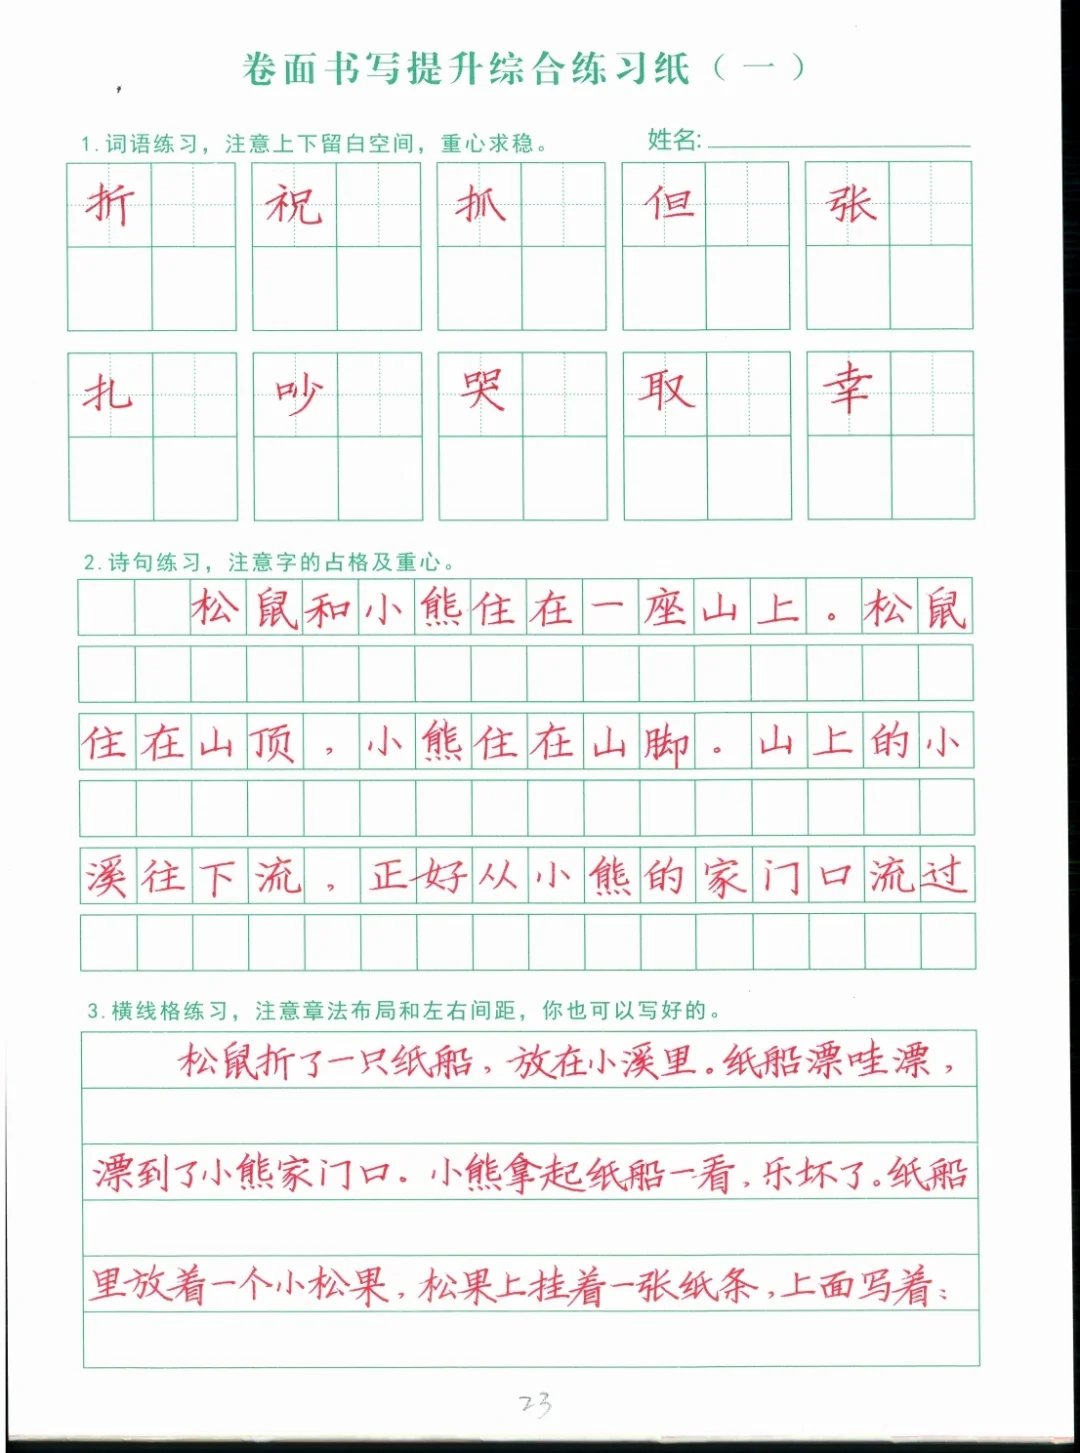 卷面书写提升综合练习纸（一）
1.词语练习，注意上下留白空间，重心求稳。 姓名:
折 祝 抓 但 张
扎 吵 哭 取 幸
2.诗句练习，注意字的占格及重心。
松鼠和小熊住在一座山上。松鼠
住在山顶，小熊住在山脚。山上的小
溪往下流，正好从小熊的家门口流过
3.横线格练习，注意章法布局和左右间距，你也可以写好的。
松鼠折了一只纸船，放在小溪里。纸船漂哇漂，
漂到了小熊家门口。小熊拿起纸船一看，乐坏了。纸船
里放着一个小松果，松果上挂着一张纸条，上面写着：
23